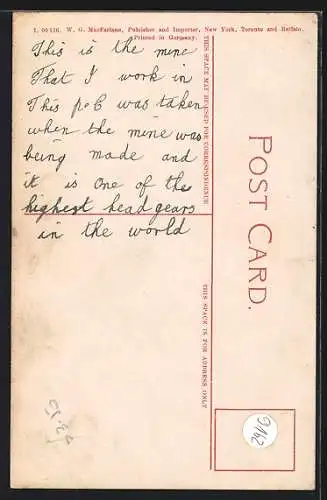 I. 00 136. W. G. MacFarlane, Publisher and Importer, New York, Toronto and Buffalo.
Printed in Germany.
This is the mine
That I work in
This p&C was taken
when the mine was
being made and
it is one of the
highest head gears
in the world
THIS SPACE MAY BE USED FOR CORRESPONDENCE
THIS SPACE IS FOR ADDRESS ONLY
POST CARD.